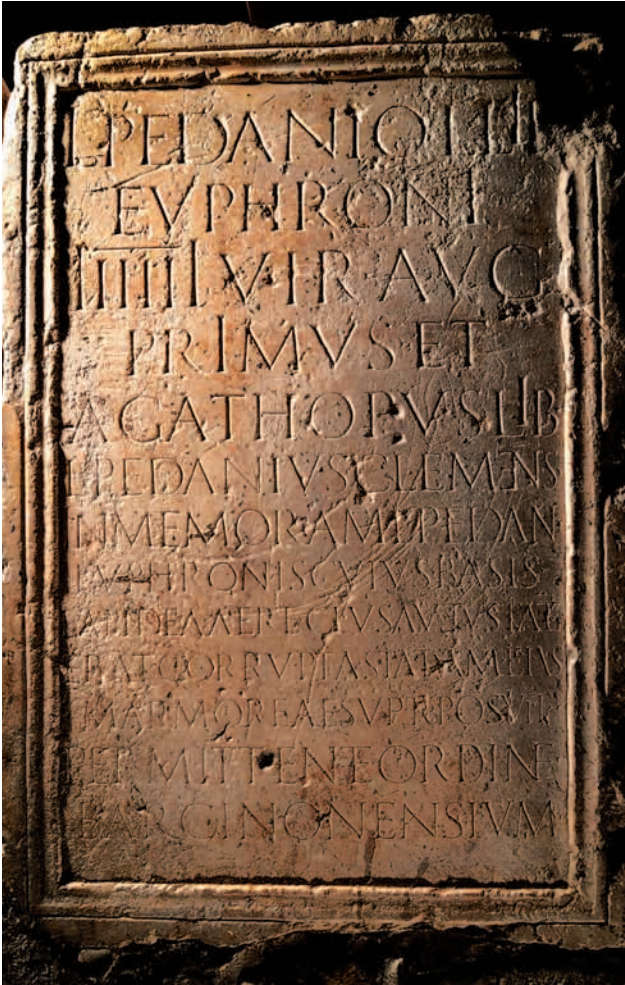 L PEDANIO
EVPHRONI
IIIIII VIR AVG
PRIMVS ET
AGATHOPVS LIB
L PEDANIVS CLEMENS
IN MEMORIAM L PEDANI
EVPHRONIS CVIVS BASIS
LAPIDEA
ERAT CORRVPTA STATVAM EIVS
MARMOREAE SVPERPOSVIT
PERMITTENTE ORDINE
BARCINONENSIVM